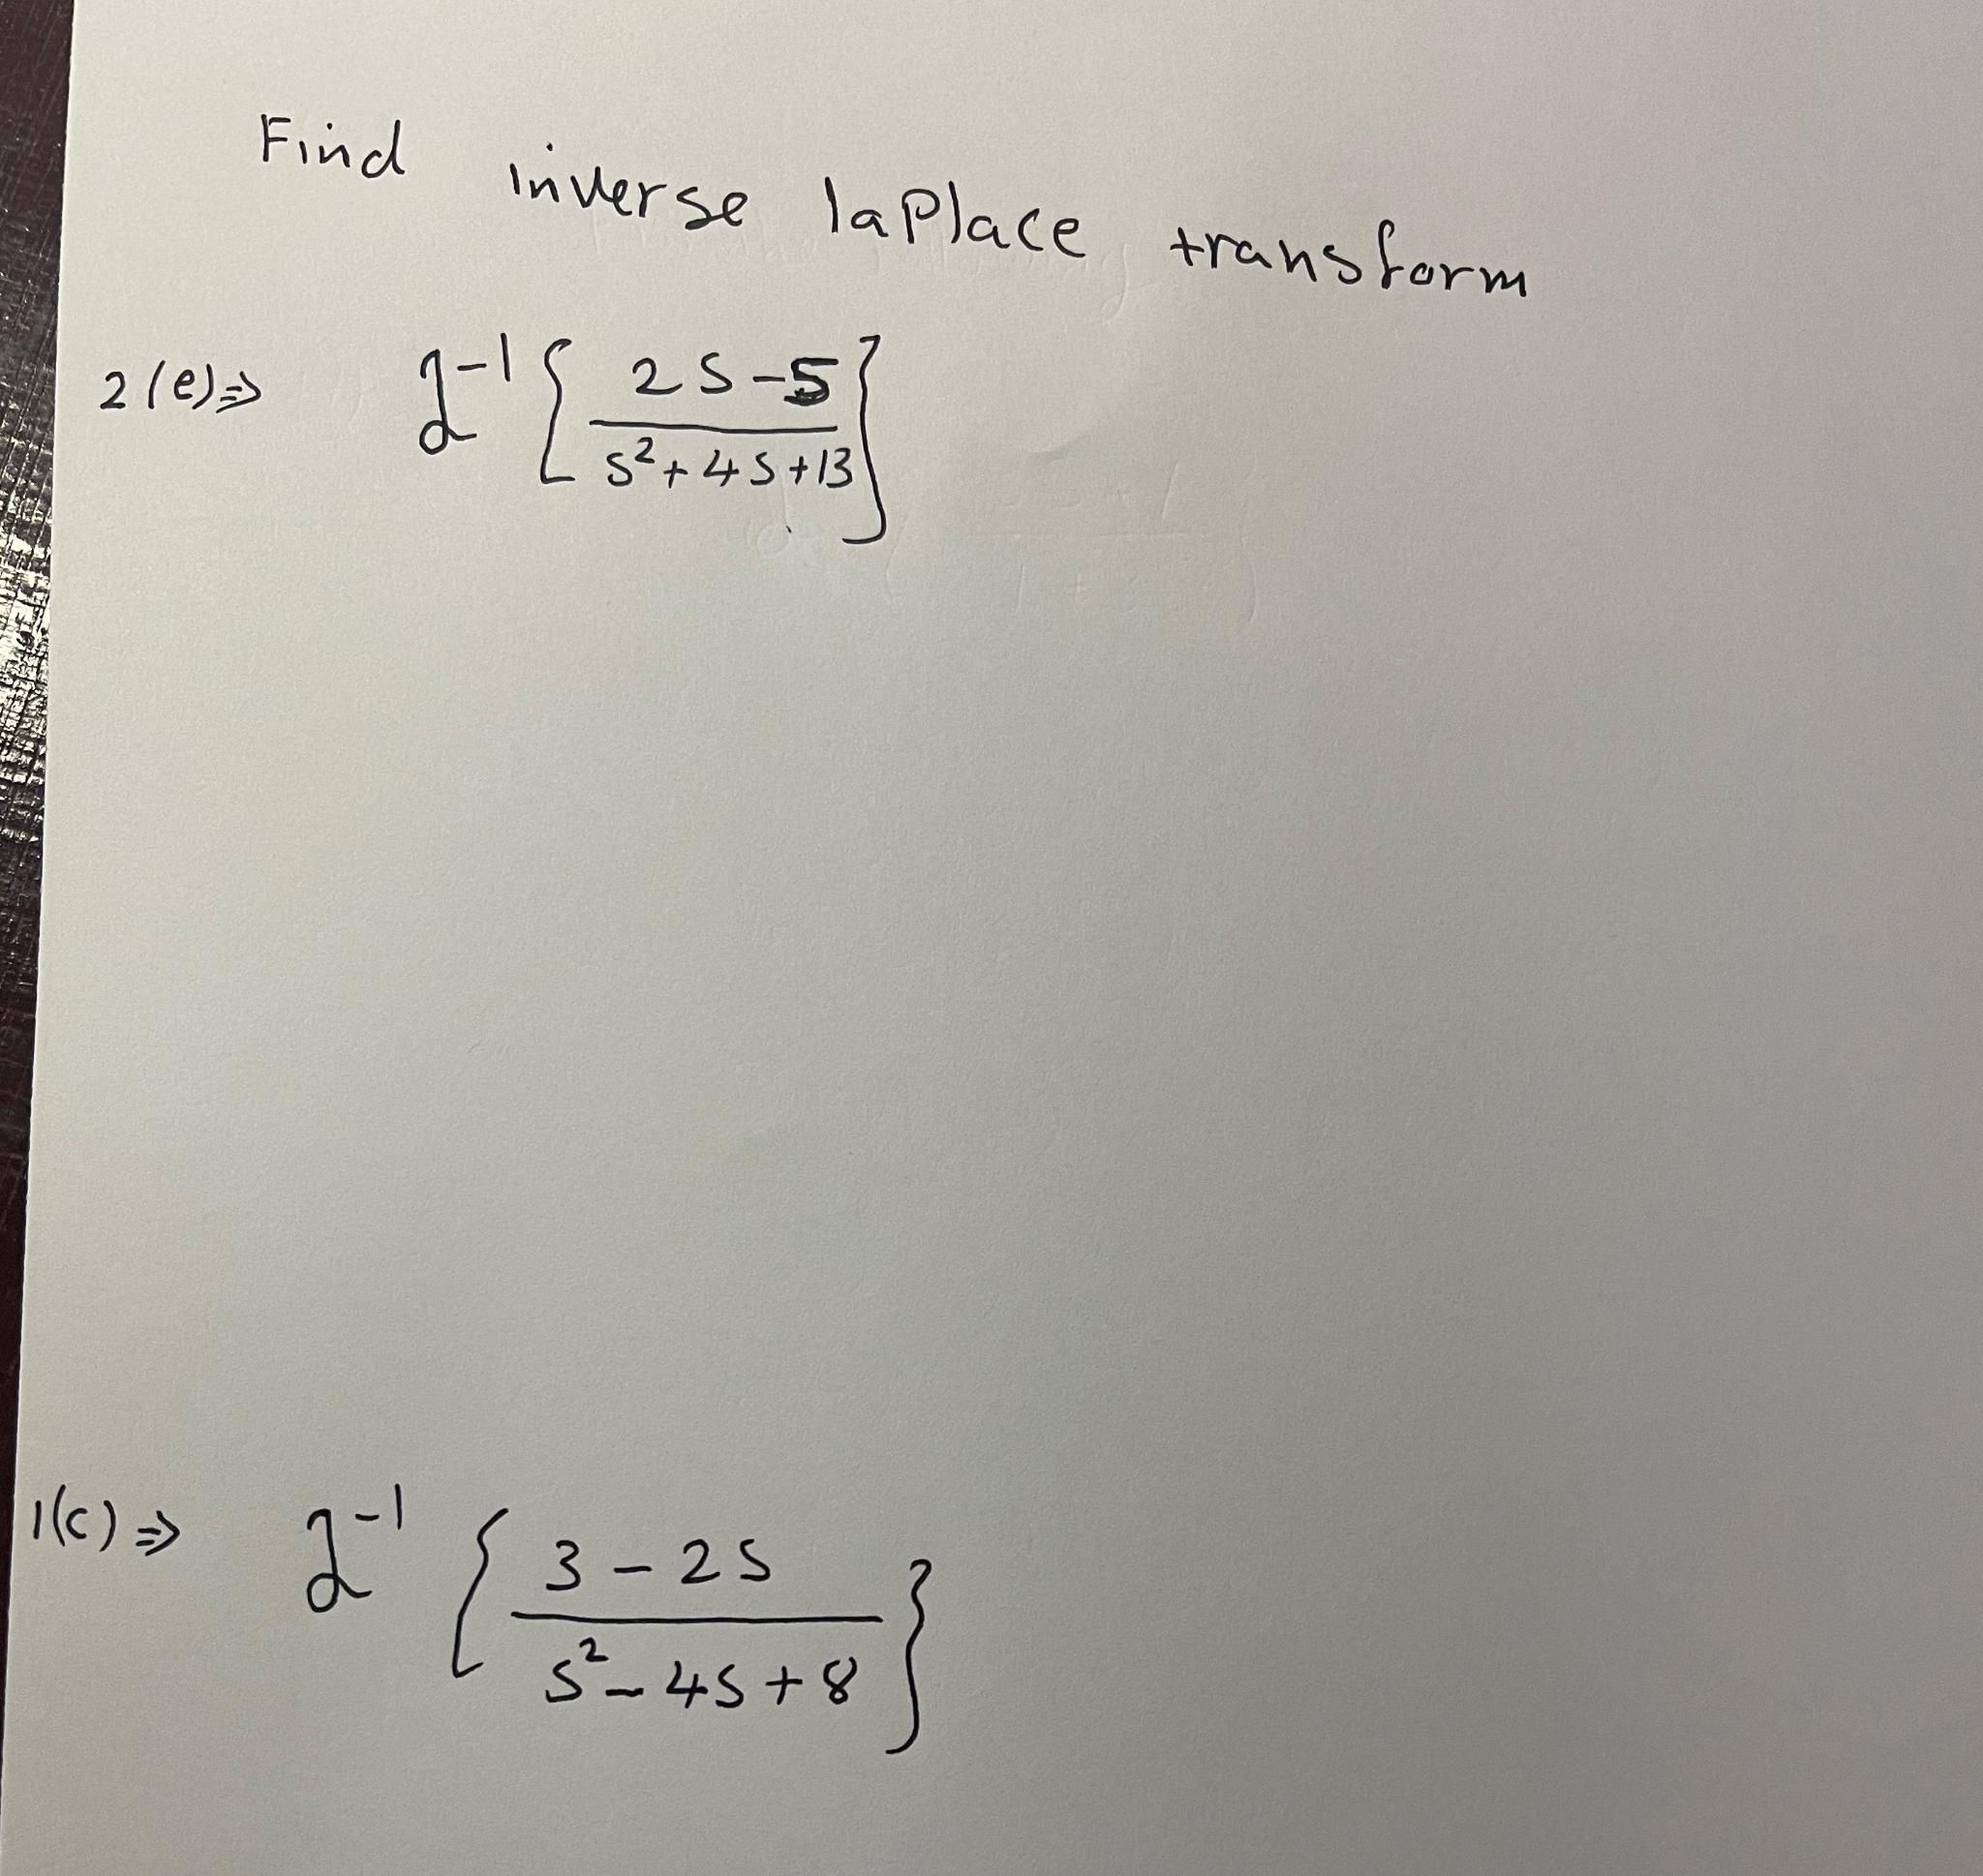 Find inverse laPlace transform
2(e)⇒ ℒ⁻¹{ (2s-5)/(s²+4s+13) }
1(c)⇒ ℒ⁻¹{ (3-2s)/(s²-4s+8) }